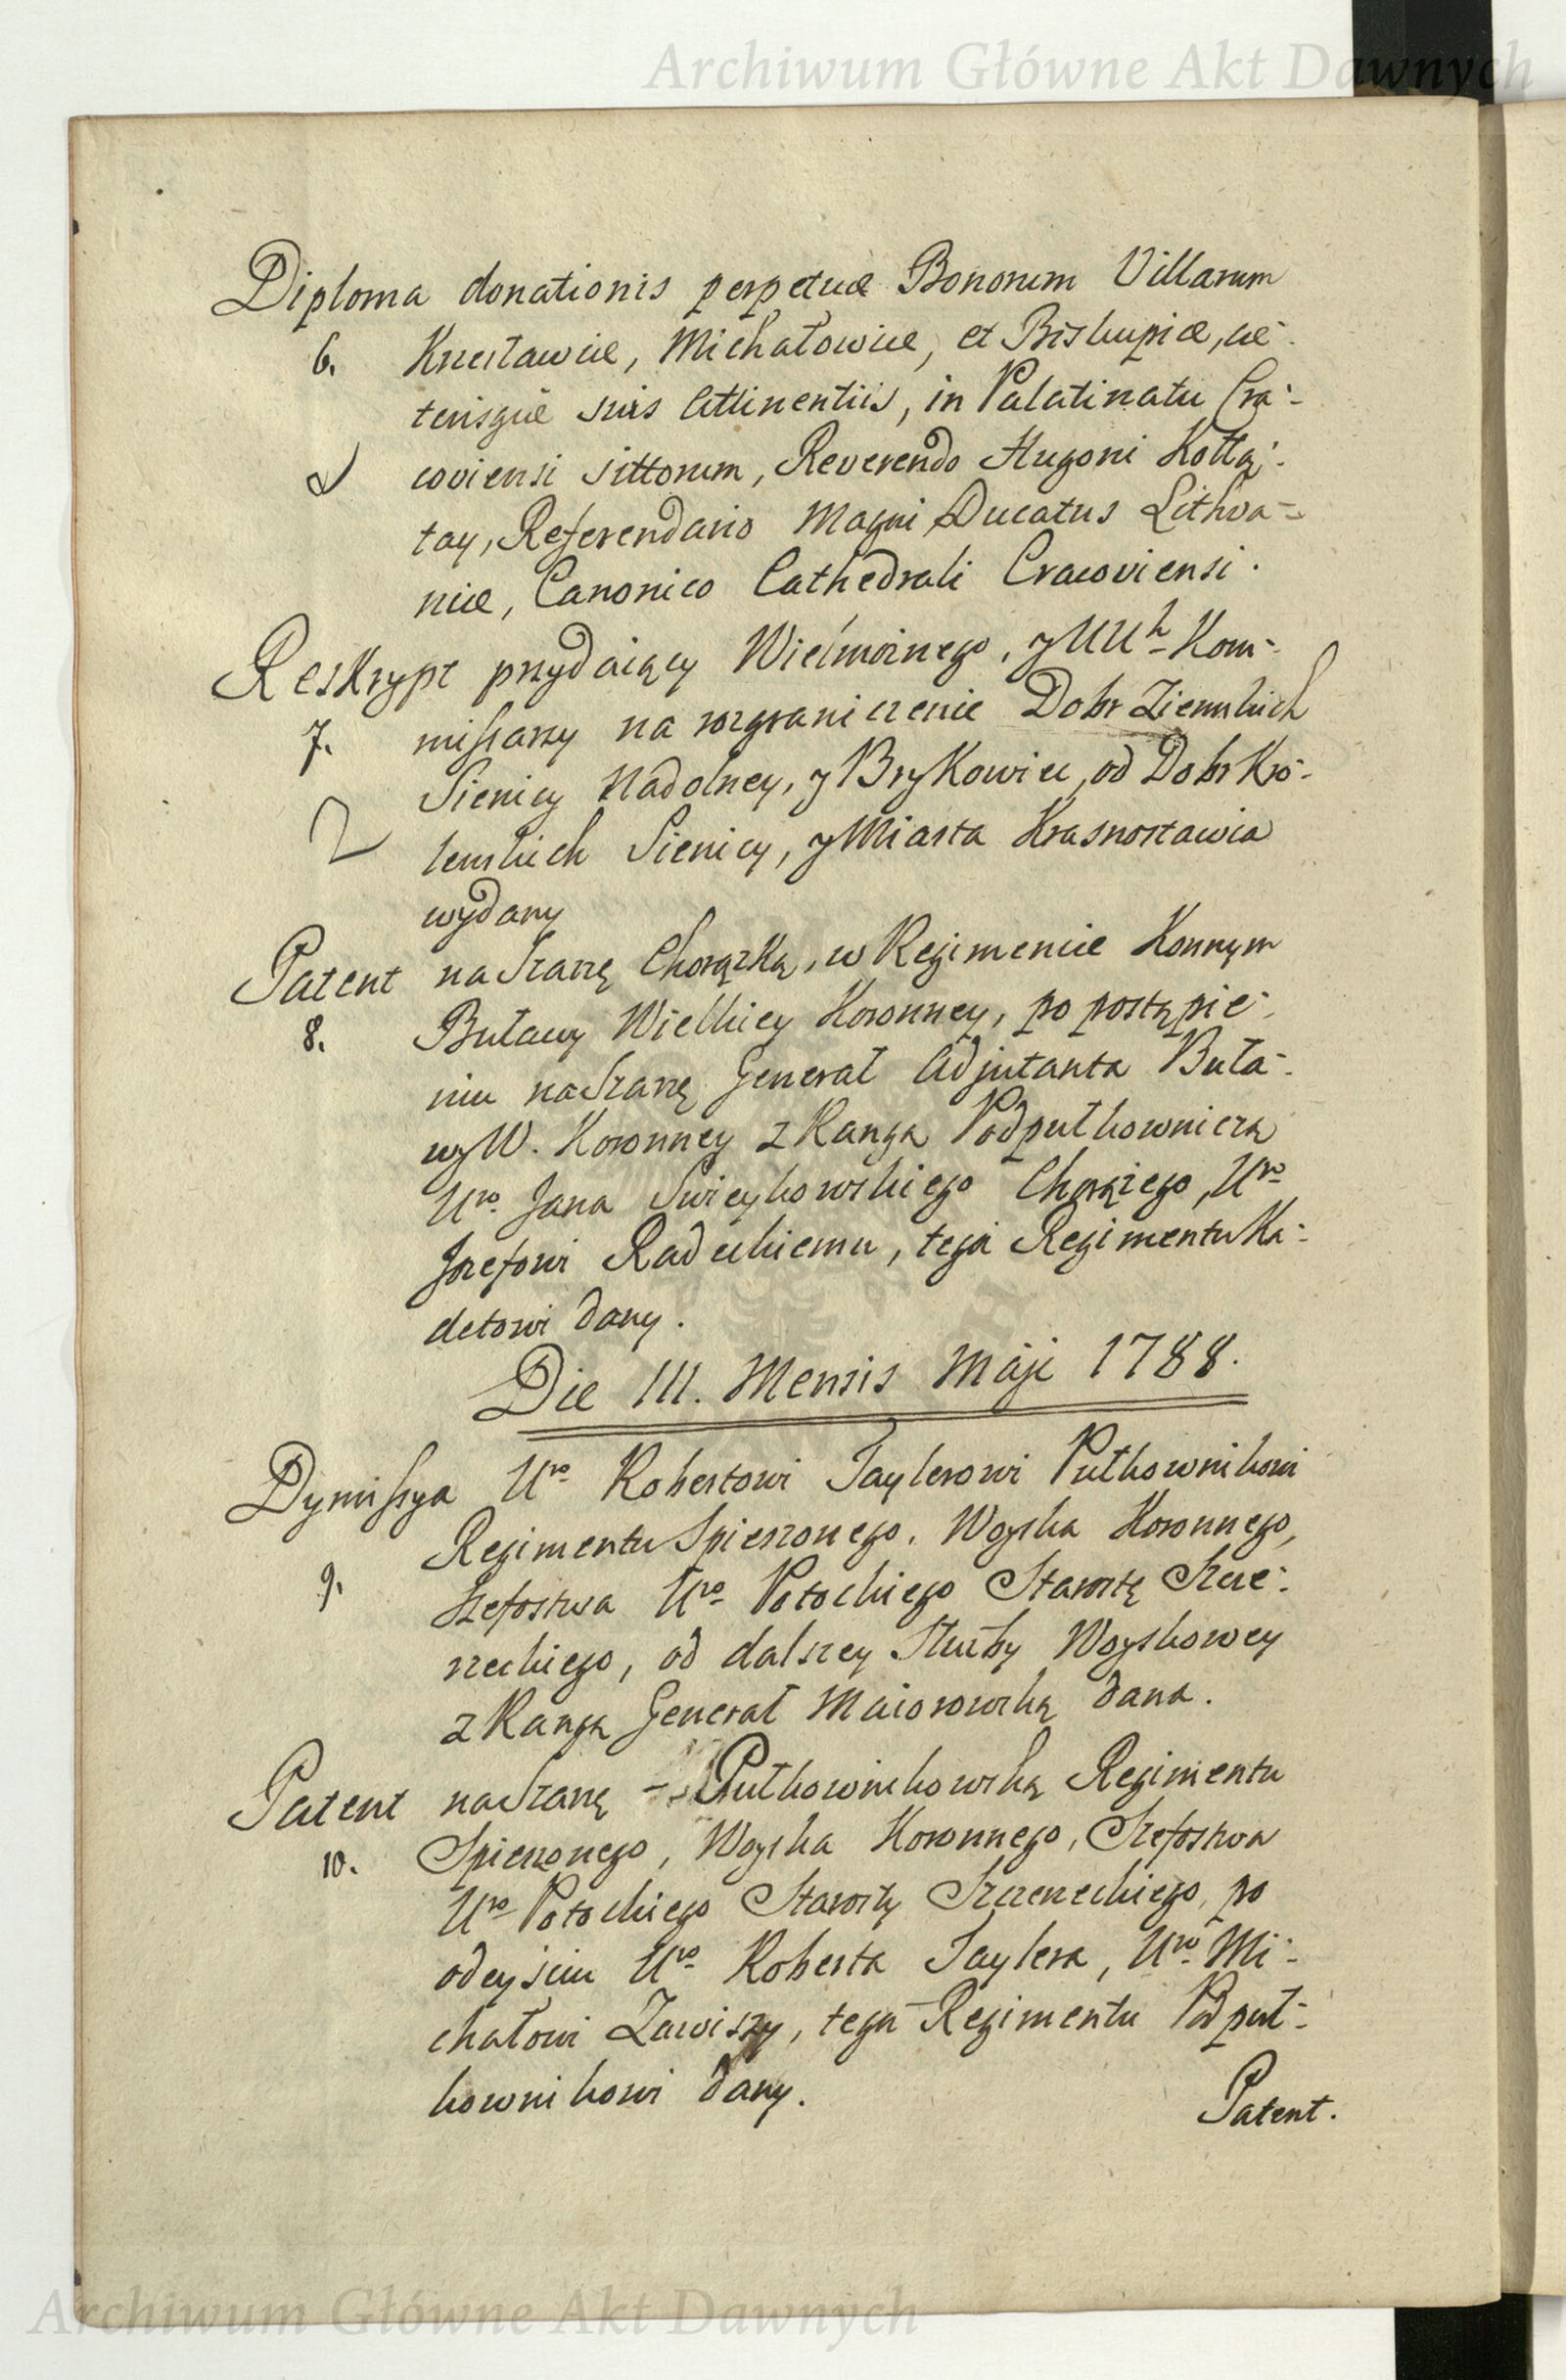 Archiwum Główne Akt Dawnych
Diploma donationis perpetuæ Bonorum Villarum
6. Krzesławice, Michałowice, et Biskupice, cæ=
terisque suis Attinentiis, in Palatinatu Cra=
coviensi sittorum, Reverendo Hugoni Kołłą=
tay, Referendario Magni Ducatus Lithva=
niæ, Canonico Cathedrali Cracoviensi.
Reskrypt przydaiący Wielmożnego, y UUh Kom=
7. missarzy na rozgraniczenie Dobr Ziemskich
Sienicy Nadolney, y Brykowiec, od Dobr Kró=
lewskich Sienicy, y Miasta Krasnostawia
wydany
Patent na Szarżę Chorążką, w Regimencie Konnym
8. Buławy Wielkiey Koronney, po postąpie=
niu na Szarżę Generał Adjutanta Buła=
wy W. Koronney z Rangą Podpułkowniczą
Uro Jana Swieykowskiego Chorążego, Uro
Jozefowi Radeckiemu, tegoż Regimentu Ka=
detowi dany.
Die III. Mensis Maji 1788.
Dymissya Uro Robertowi Taylerowi Pułkownikowi
Regimentu Spieszonego, Woyska Koronnego,
9. Szefostwa Uro Potockiego Starosty Szcze=
rzeckiego, od dalszey Służby Woyskowey
z Rangą Generał Maiorowską dana.
Patent na Szarżę - Pułkownikowską Regimentu
10. Spieszonego, Woyska Koronnego, Szefostwa
Uro Potockiego Starosty Szczerzeckiego, po
odeyściu Uro Roberta Taylera, Uro Mi=
chałowi Zawiszy, tegoż Regimentu Podpuł=
kownikowi dany.
Patent.
Archiwum Główne Akt Dawnych